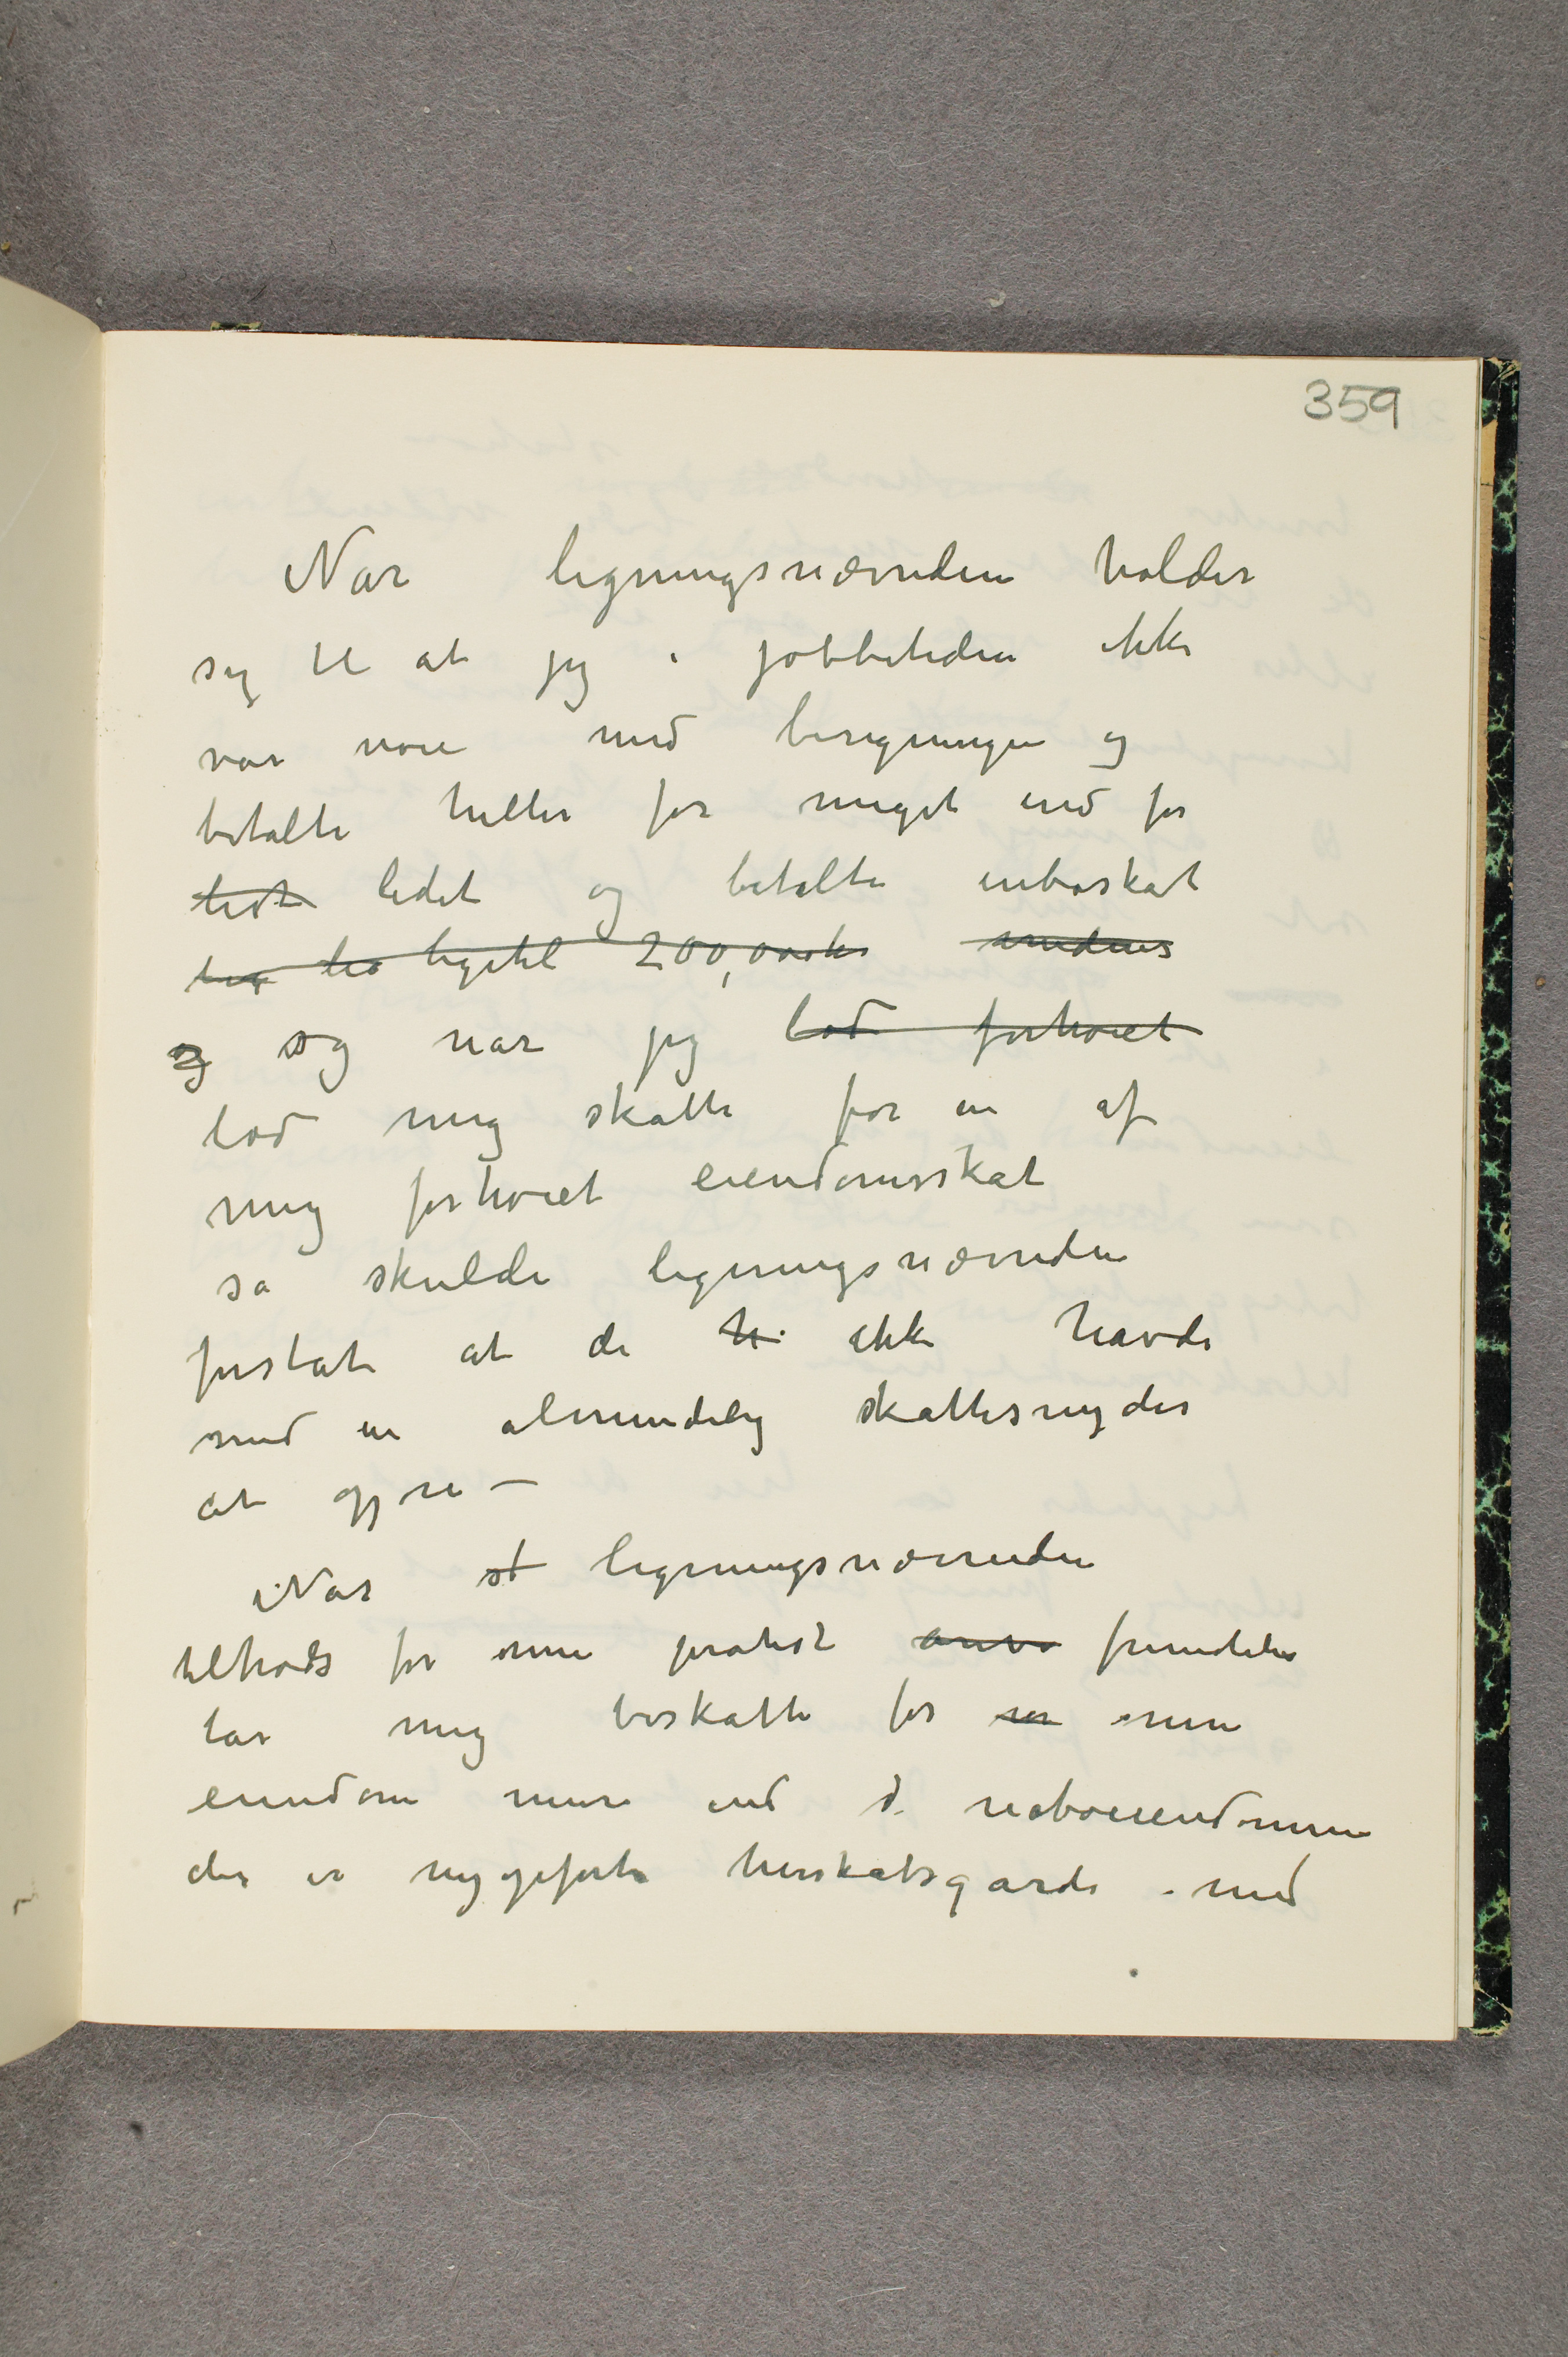 359
Når ligningsnævnden holder
sig til at jeg i jobbetiden ikke
var nøie med beregningen og
betalte heller for meget end for
lidt lidet og betalte inboskat
ligetil 200,000 kr
og og når jeg lod forhøiet
lod mig skatte for en af
mig forhøiet eiendomsskat
så skulde ligningsnævnden
forståt at de h ikke havde
med en almindelig skattesnyder
at gjøre –
Når st ligningsnævnden
tiltrods for min protest fremdeles
lar mig beskatte for min
eiendom mere end d. naboeiendommene
der er nyopførte herskabsgårde med